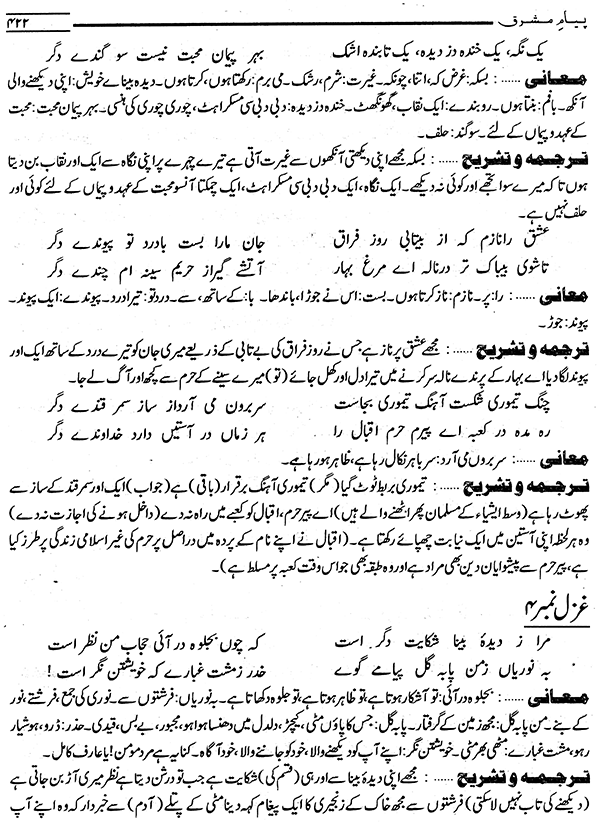 پیامِ مشرق
۴۲۲
یک نگہ، یک خندہ دز دیدہ، یک تا بندہ اشک بہر پیمان محبت نیست سو گندے دگر
معانی ......: بسکہ: غرض کہ، اتنا، چونکہ۔ غیرت: شرم، رشک۔ می برم: رکھتا ہوں، کرتا ہوں۔ دیدہ بیناے خویش: اپنی دیکھنے والی
آنکھ۔ بافم: بنتا ہوں۔ روبندے: ایک نقاب، گھونگھٹ۔ خندہ دز دیدہ: دبی دبی سی مسکراہٹ، چوری چوری کی ہنسی۔ بہر پیمان محبت: محبت
کے عہد و پیماں کے لئے۔ سوگند: حلف۔
ترجمہ و تشریح ......: بسکہ مجھے اپنی دیکھتی آنکھوں سے غیرت آتی ہے تیرے چہرے پر اپنی نگاہ سے ایک اور نقاب بن دیتا
ہوں تاکہ میرے سوا تجھے اور کوئی نہ دیکھے۔ ایک نگاہ، ایک دبی دبی سی مسکراہٹ، ایک چمکتا آنسو محبت کے عہد و پیماں کے لئے کوئی اور
حلف نہیں ہے۔
عشق را نازم کہ از بیتابی روز فراق جان مارا بست بادرد تو پیوندے دگر
تاشوی بیباک تر درنالہ اے مرغ بہار آتشے گیر از حریم سینہ ام چندے دگر
معانی ......: را: پر۔ نازم: ناز کرتا ہوں۔ بست: اس نے جوڑا، باندھا۔ با: کے ساتھ، سے۔ درد تو: تیرا درد۔ پیوندے: ایک پیوند۔
پیوند: جوڑ۔
ترجمہ و تشریح ......: مجھے عشق پر ناز ہے جس نے روز فراق کی بے تابی کے ذریعے میری جان کو تیرے درد کے ساتھ ایک اور
پیوند لگا دیا اے بہار کے پرندے نالہ سر کرنے میں تیرا دل اور کھل جائے (تو) میرے سینے کے حرم سے کچھ اور آگ لے جا۔
چنگ تیموری شکست آہنگ تیموری بجاست سر برون می آرد از ساز سمر قندے دگر
رہ مدہ در کعبہ اے پیرم حرم اقبال را ہر زماں در آستیں دارد خداوندے دگر
معانی ......: سر بروں می آرد: سر باہر نکال رہا ہے، ظاہر ہو رہا ہے۔
ترجمہ و تشریح ......: تیموری بربط ٹوٹ گیا (مگر) تیموری آہنگ برقرار (باقی) ہے (جواب) ایک اور سمرقند کے ساز سے
پھوٹ رہا ہے (وسط ایشیاء کے مسلمان پھر اٹھنے والے ہیں) اے پیر حرم، اقبال کو کعبے میں راہ نہ دے (داخل ہونے کی اجازت نہ دے)
وہ ہر لحظہ اپنی آستین میں ایک نیا بت چھپائے رکھتا ہے۔ (اقبال نے اپنے نام کے پردہ میں دراصل پر حرم کی غیر اسلامی زندگی پر طنز کیا
ہے، پیر حرم سے پیشوایان دین بھی مراد ہے اور وہ طبقہ بھی جو اس وقت کعبہ پر مسلط ہے)۔
غزل نمبر ۴
مرا ز دیدۂ بینا شکایت دگر است کہ چوں بجلوہ در آئی حجاب من نظر است
بہ نوریاں زمن پابہ گل پیامے گوے حذر زمشت غبارے کہ خویشتن نگر است!
معانی ......: بجلوہ در آئی: تو آشکار ہوتا ہے، تو ظاہر ہوتا ہے، تو جلوہ دکھاتا ہے۔ بہ نوریاں: فرشتوں سے۔ نوری کی جمع، فرشتے، نور
کے بنے۔ من پابہ گل: مجھ زمین کے گرفتار۔ پابہ گل: جس کا پاؤں مٹی، کیچڑ، دلدل میں دھنسا ہوا ہو، مجبور، بے بس، قیدی۔ حذر: ڈرو، ہوشیار
رہو، مشت غبارے: مٹھی بھر مٹی۔ خویشتن نگر: اپنے آپ کو دیکھنے والا، خود کو جاننے والا، خود آگاہ۔ کنایہ ہے مرد مومن! یا عارف کامل۔
ترجمہ و تشریح ......: مجھے اپنی دیدۂ بینا سے اور ہی (قسم کی) شکایت ہے جب تو درشن دیتا ہے نظر میری آڑ بن جاتی ہے
(دیکھنے کی تاب نہیں لا سکتی) فرشتوں سے مجھ خاک کے زنجیری کا ایک پیغام کہہ دینا مٹی کے پتلے (آدم) سے خبردار کہ وہ اپنے آپ